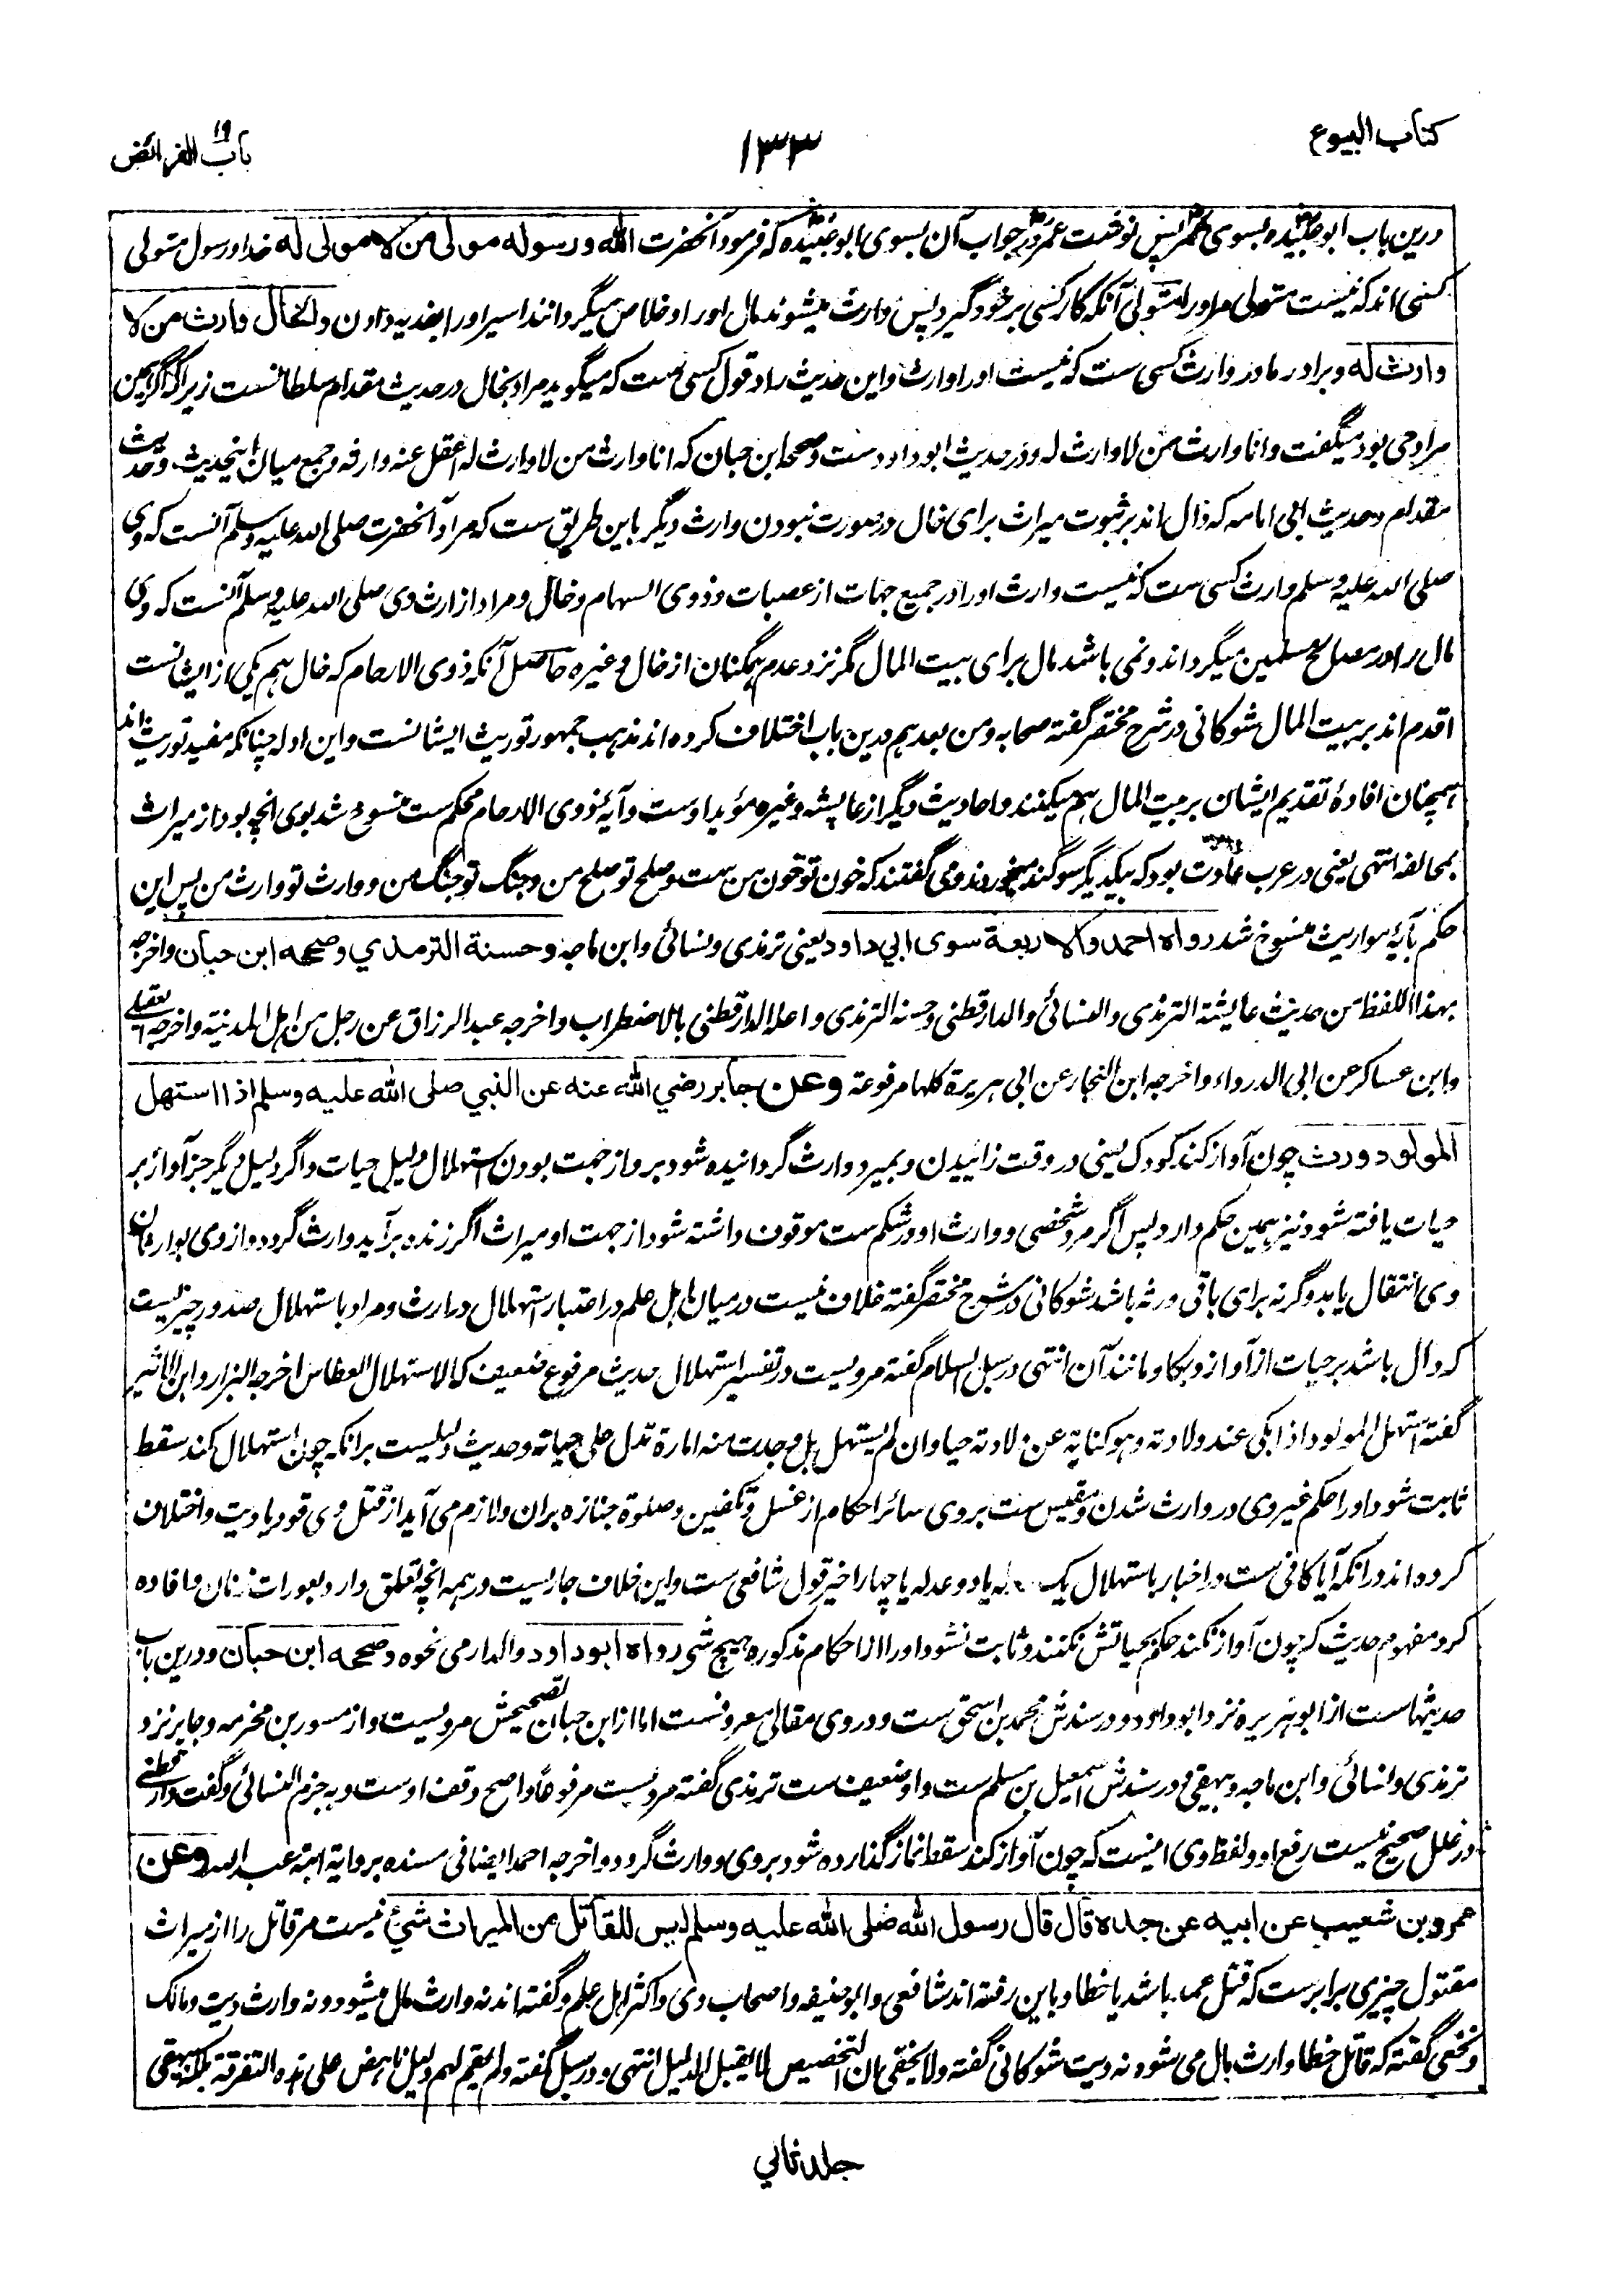 كتاب البيوع
١٣٣
باب الفرائض
١٩
درین باب ابو عبیده بسوی عمر پس نوشت عمر در جواب آن بسوی ابو عبیده که فرمود آنحضرت الله ورسوله مولى من لا مولى له خدا و رسول متولی
کسی اند که نیست متولی مر اورا متولی آنکه کار کسی بر خود گیرد پس وارث میشوند مال اورا و خلاص میگردانند اسیر اورا بفدیه دادن والخال وارث من لا
وارث له و برادر مادر وارث کسی ست که نیست اورا وارث و این حدیث راد قول کسی ست که میگوید مراد بخال در حدیث مقدام سلطانست زیرا که اگر همین
مراد می بود میگفت وانا وارث من لا وارث له و در حدیث ابو داود ست وصححه ابن حبان که انا وارث من لا وارث له اعقل عنه وارثه و جمع میان اینحدیث و حدیث
مقدام و حدیث ابی امامه که دال اند بر ثبوت میراث برای خال در صورت نبودن وارث دیگر باین طریق ست که مراد آنحضرت صلی الله علیه وسلم آنست که وی
صلی الله علیه وسلم وارث کسی ست که نیست وارث اورا در جمیع جهات از عصبات و ذوی السهام و خال و مراد از ارث وی صلی الله علیه وسلم آنست که وی
مال را در مصالح مسلمین میگرداند و نمی باشد مال برای بیت المال مگر نزد عدم همگنان از خال و غیره حاصل آنکه ذوی الارحام که خال هم یکی از ایشانست
اقدم اند بر بیت المال شوکانی در شرح مختصر گفته صحابه و من بعدهم درین باب اختلاف کرده اند مذهب جمهور توریث ایشانست و این ادله چنانکه مفید توریث اند
همچنان افادهٔ تقدیم ایشان بر بیت المال هم میکنند و احادیث دیگر از عایشه و غیره مؤید اوست و آیهٔ ذوی الارحام محکم ست منسوخ شد بوی انچه بود از میراث
بمحالفه انتهی یعنی در عرب عادت بود که بیکدیگر سوگند میخوردند و می گفتند که خون تو خون من ست و صلح تو صلح من و جنگ تو جنگ من و وارث تو وارث من پس این
حکم بآیهٔ مواریث منسوخ شد رواه احمد والاربعة سوى ابي داود یعنی ترمذی و نسائی و ابن ماجه وحسنة الترمذي وصححه ابن حبان واخرجه
بهذا اللفظ من حدیث عایشة الترمذی والنسائی والدارقطنی وحسنه الترمذی واعله الدارقطنی بالاضطراب واخرجه عبد الرزاق عن رجل من اهل المدینة واخرجه العقیلی
وابن عساکر عن ابی الدرداء واخرجه ابن النجار عن ابی هریرة کلها مرفوعة وعن جابر رضي الله عنه عن النبي صلى الله عليه وسلم اذا استهل
المولود ورث چون آواز کند کودک یعنی در وقت زاییدن و بمیرد وارث گردانیده شود بر و از جهت بودن استهلال دلیل حیات و اگر دلیل دیگر جز آواز بر
حیات یافته شود نیز همین حکم دارد پس اگر مرد شخصی و وارث او در شکم ست موقوف داشته شود از جهت او میراث اگر زنده برآید وارث گردد و از وی بوارثان
وی انتقال یابد وگرنه برای باقی ورثه باشد شوکانی در شرح مختصر گفته خلاف نیست درمیان اهل علم در اعتبار استهلال در ارث و مراد باستهلال صدور چیزیست
که دال باشد بر حیات از آواز و بکا و مانند آن انتهی در سبل السلام گفته مرویست در تفسیر استهلال حدیث مرفوع ضعیف که الاستهلال العطاس اخرجه البزار وابن الاثیر
گفته استهل المولود اذا بکی عند ولادته وهو کنایة عن ولادته حیا وان لم یستهل بل وجدت منه امارة تدل علی حیاته و حدیث دلیلست برانکه چون استهلال کند سقط
ثابت شود اورا حکم غیر وی در وارث شدن و مقیس ست بر وی سائر احکام از غسل و تکفین و صلوة جنازه بران و لازم می آید از قتل وی قود یا دیت و اختلاف
کرده اند درانکه آیا کافی ست در اخبار باستهلال یک عدله یا دو عدله یا چهار اخیر قول شافعی ست و این خلاف جاریست در همه انچه تعلق دارد بعورات زنان و افاده
کرد مفهوم حدیث که چون آواز نکند حکم بحیاتش نکنند و ثابت نشود اورا از احکام مذکوره هیچ شی رواه ابوداود والدارمي نحوه وصححه ابن حبان و درین باب
حدیثهاست از ابو هریره نزد ابو داود و در سندش محمد بن اسحق ست و در وی مقالی معروفست اما از ابن حبان تصحیحش مرویست و از مسور بن مخرمه و جابر نزد
ترمذی و نسائی و ابن ماجه و بیهقی و در سندش اسمعیل بن مسلم ست و او ضعیف ست ترمذی گفته مرویست مرفوعاً و اصح وقف اوست و به جزم النسائی و گفت دارقطنی
در علل صحیح نیست رفع او و لفظ وی اینست که چون آواز کند سقط نماز گذارده شود بروی و وارث گردد واخرجه احمد ایضا فی مسنده بروایة ابنه عبد الله وعن
عمرو بن شعيب عن ابيه عن جده قال قال رسول الله صلى الله عليه وسلم ليس للقاتل من الميراث شيئ نیست مر قاتل را از میراث
مقتول چیزی برابرست که قتل عمد باشد یا خطا و باین رفته اند شافعی و ابو حنیفه و اصحاب وی و اکثر اهل علم و گفته اند نه وارث مال میشود و نه وارث دیت و مالک
و نخعی گفته که قاتل خطا وارث مال می شود نه دیت شوکانی گفته ولا یخفی ان التخصیص لا یقبل الا بدلیل انتهی و در سبل گفته ولم یقم لهم دلیل ناهض علی هذه التفرقة بلکه بیهقی
جلد ثاني